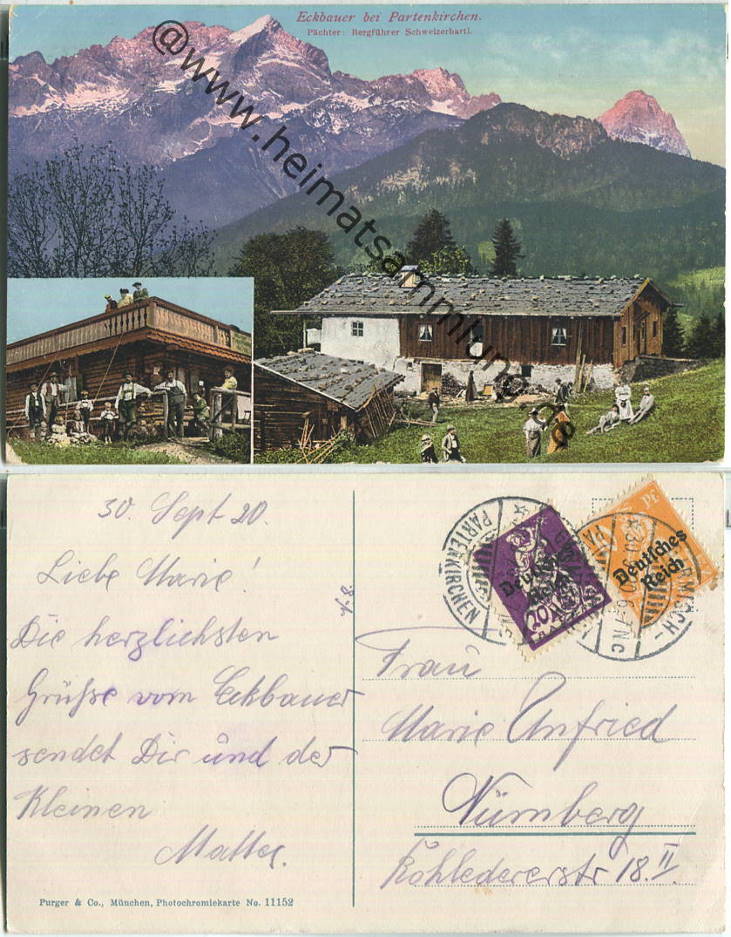 Eckbauer bei Partenkirchen.
Pächter: Bergführer Schweizerbartl.
@www.heimatsammlung.de
30. Sept 20.
Liebe Marie!
Die herzlichsten
Grüße vom Eckbauer
sendet Dir und der
Kleinen
PARTENKIRCHEN
Deutsches
Reich
20
Deutsches
Reich
Frau
Marie Unfried
Nürnberg
18. II.
Purger & Co., München, Photochromiekarte No. 11152